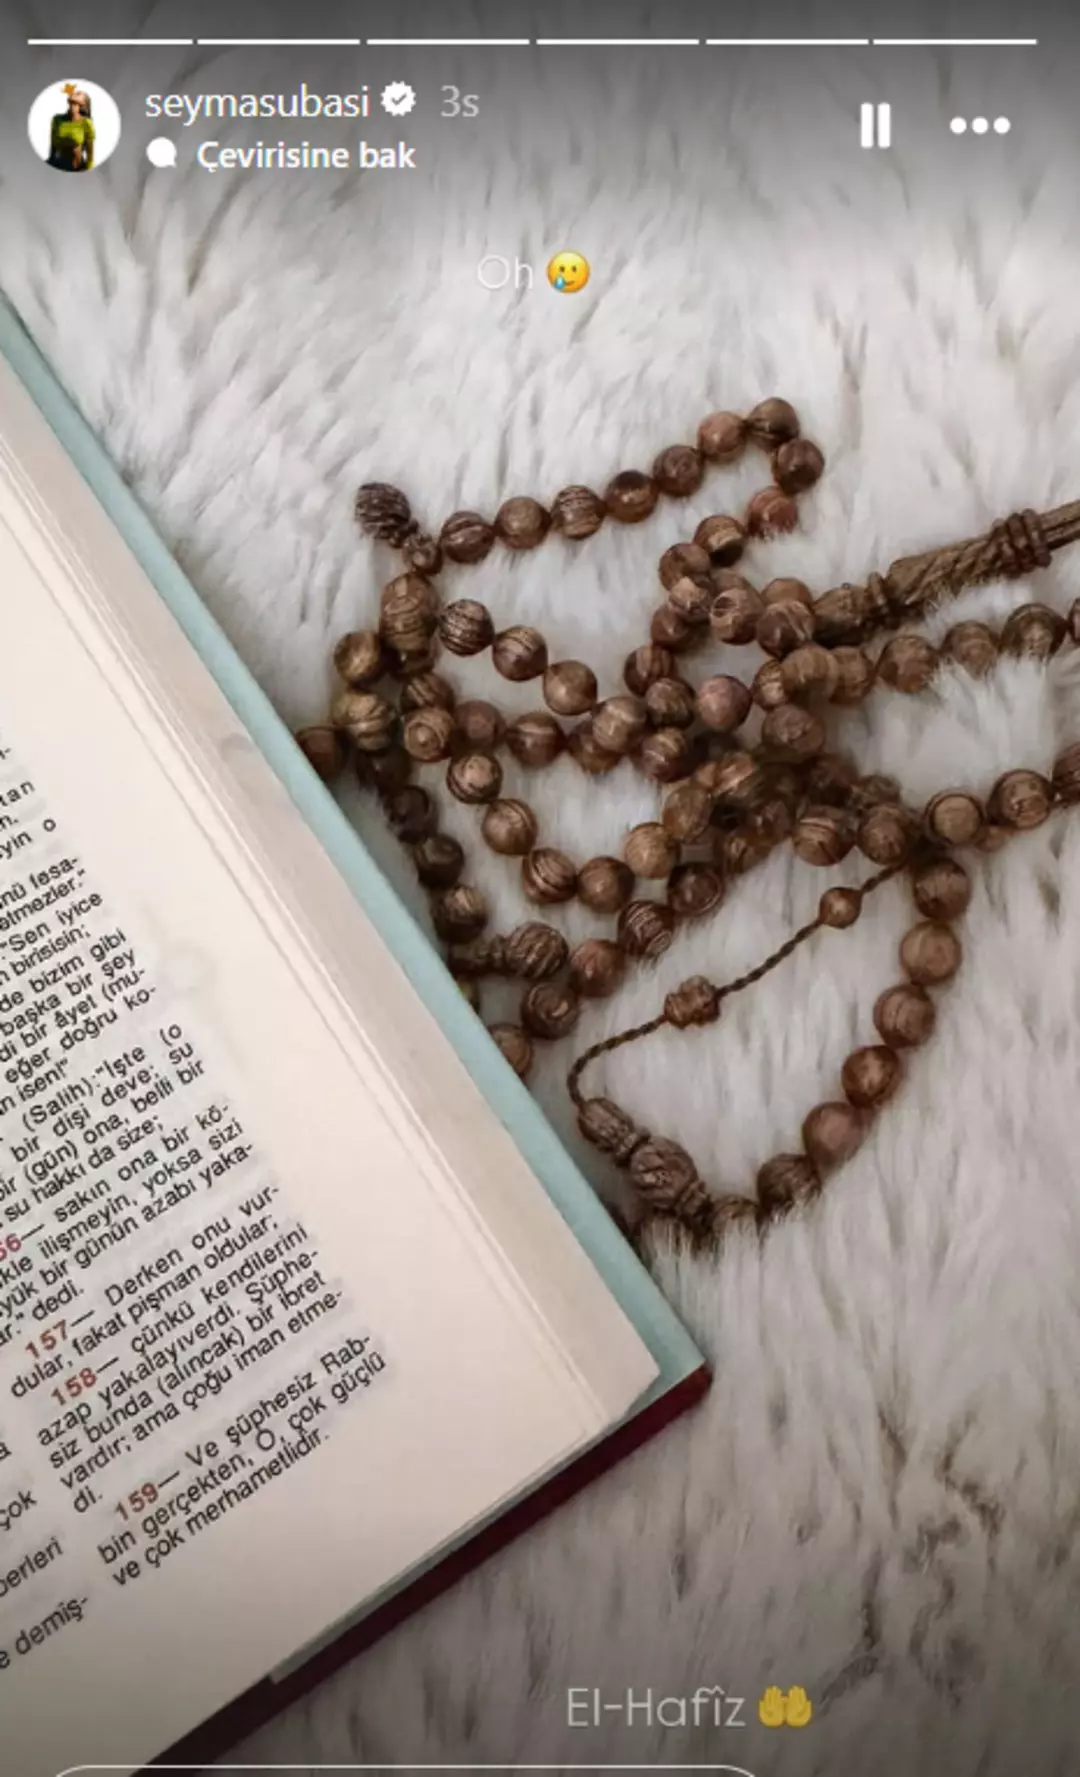 seymasubasi 3s
Çevirisine bak
Oh 🥲
tan
yin o
etmezler."
"Sen iyice
birisisin;
de bizim gibi
başka bir şey
di bir âyet (mu-
eğer doğru ko-
isen!"
(Salih):"İşte (o
bir dişi deve; su
(gün) ona, belli bir
su hakkı da size;
sakın ona bir kö-
ilişmeyin, yoksa sizi
bir günün azabı yaka-
dedi.
157— Derken onu vur-
dular, fakat pişman oldular;
158— çünkü kendilerini
azap yakalayıverdi. Şüphe-
siz bunda (alıncak) bir ibret
vardır; ama çoğu iman etme-
di.
159— Ve şüphesiz Rab-
bin gerçekten, O, çok güçlü
ve çok merhametlidir.
çok
berleri
demiş-
El-Hafîz 🤲